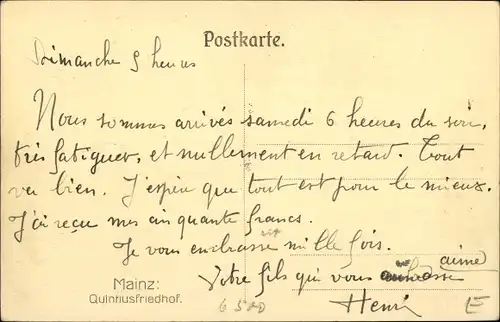 Postkarte.
Dimanche 9 heures
Nous sommes arrivés samedi 6 heures du soir,
très fatiguer, et nullement en retard. Tout
va bien. J'espère que tout est pour le mieux.
J'ai reçu mes cinquante francs.
Je vous embrasse mille fois.
Votre fils qui vous aime
Henri
Mainz:
Quintiusfriedhof.
6500
E